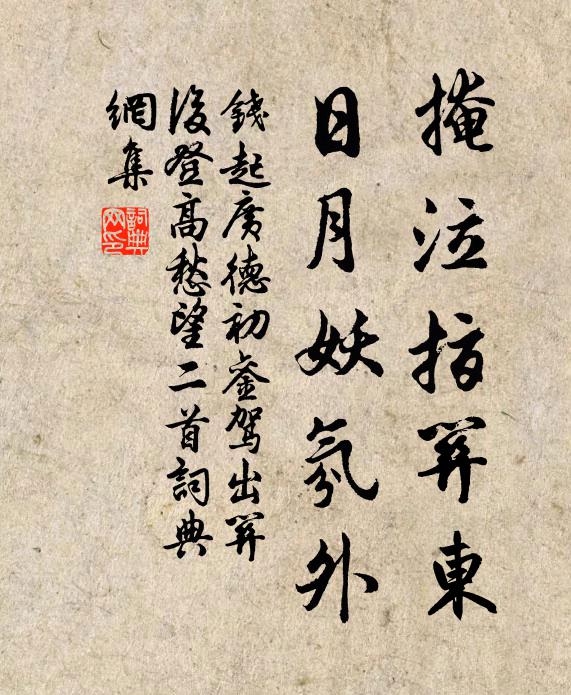 掩泣指關東
日月妖氛外
錢起廣德初鑾駕出關
後登高愁望二首詞典
網集
詞典網印